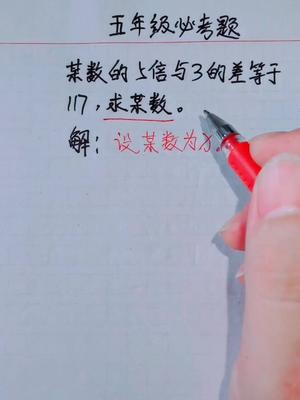 五年级必考题
某数的5倍与3的差等于
117，求某数。
解：设某数为x